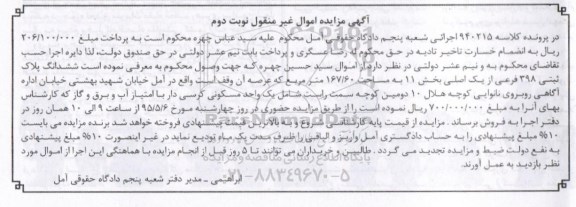 آگهی مزایده اموال غیر منقول نوبت دوم
در پرونده کلاسه ۹۴۰۲۱۵ اجرائی شعبه پنجم دادگاه حقوقی آمل محکوم علیه سید عباس چهره محکوم است به پرداخت مبلغ ۲۰۶/۱۰۰/۰۰۰
ریال به انضمام خسارت تاخیر تادیه در حق محکوم له رضا عسگری و پرداخت بابت نیم عشر دولتی در حق صندوق دولت، لذا دایره اجرا حسب
تقاضای محکوم به و نیم عشر دولتی در نظر دارد از اموال سید حسین چهره که جهت وصول محکوم به معرفی نموده است ششدانگ پلاک
ثبتی ۳۹۸ فرعی از یک اصلی بخش ۱۱ به مساحت ۱۶۷/۶۰ متر مربع که عرصه آن وقف است واقع در آمل خیابان شهید بهشتی خیابان اداره
آگاهی روبروی نانوایی کوچه هلال ۱۰ دومین کوچه سمت راست شامل یک واحد مسکونی کرسی دار با امتیاز آب و برق و گاز که کارشناس
بهای آنرا به مبلغ ۷۰۰/۰۰۰/۰۰۰ ریال نموده است را از طریق مزایده حضوری در روز چهارشنبه مورخ ۹۵/۵/۶ از ساعت ۹ الی ۱۰ همان روز در
دفتر اجرا به فروش برساند. مزایده از قیمت پایه کارشناسی شروع و به بالاترین قیمت پیشنهادی فروخته خواهد شد برنده مزایده می بایست
۱۰% مبلغ پیشنهادی را به حساب دادگستری آمل واریز و الباقی را ظرف مدت یک ماه تودیع نماید در غیر اینصورت ۱۰% مبلغ پیشنهادی
به نفع دولت ضبط و مزایده تجدید می گردد. طالبین و خریداران می توانند تا ۵ روز قبل از انجام مزایده با هماهنگی این اجرا از اموال مورد
نظر بازدید به عمل آورند.
ابراهیمی ـ مدیر دفتر شعبه پنجم دادگاه حقوقی آمل
۰۲۱-۸۸۳۴۹۶۷۰-۵